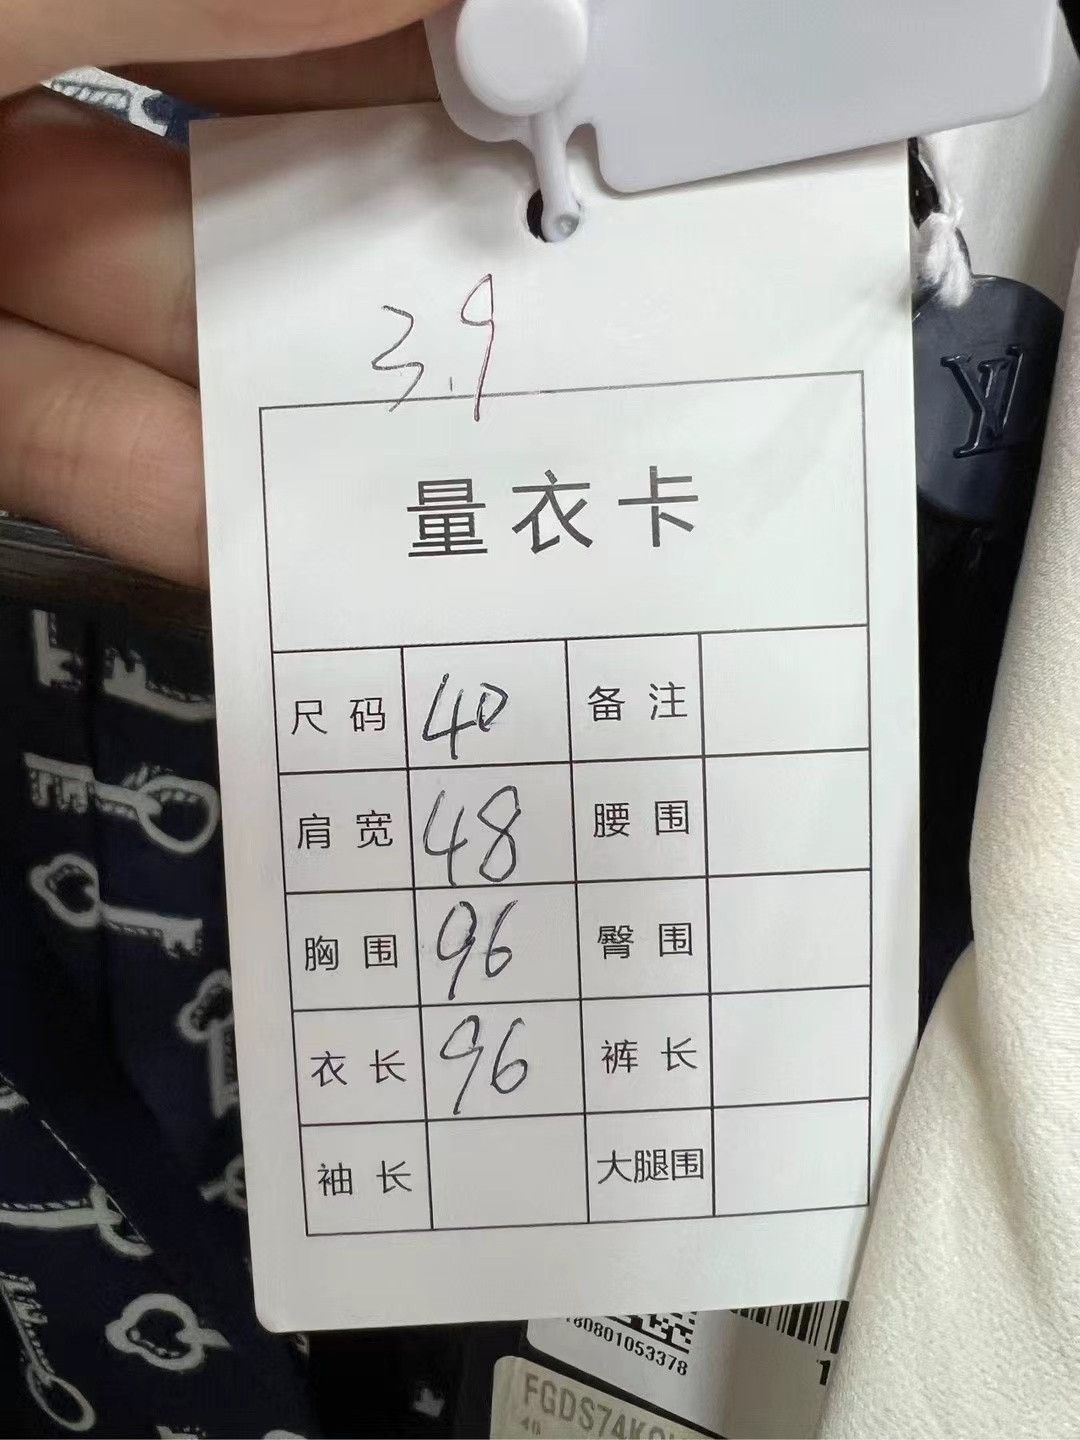 3.9
LV
量衣卡
尺码 40 备注
肩宽 48 腰围
胸围 96 臀围
衣长 96 裤长
袖长 大腿围
180801053378
1
FGDS74K
40